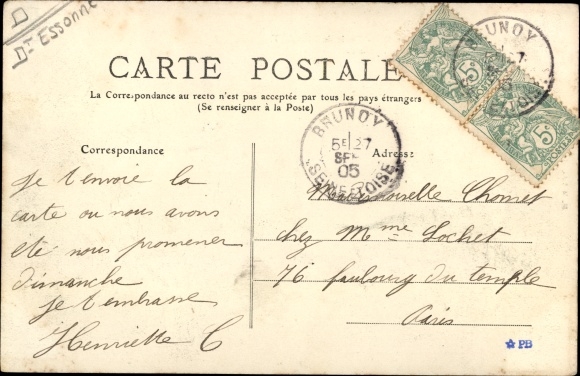 Dt Essonne
CARTE POSTALE
La Correspondance au recto n'est pas acceptée par tous les pays étrangers
(Se renseigner à la Poste)
Correspondance
Adresse
BRUNOY
5E 27
SEPT
05
SEINE ET OISE
BRUNOY
5c
POSTES
5c
POSTES
je t'envoie la
carte ou nous avons
ete nous promener
dimanche
je t'embrasse
Henriette C
Mademoiselle Chomet
chez Mme Lochet
76 faubourg du temple
Paris
PB